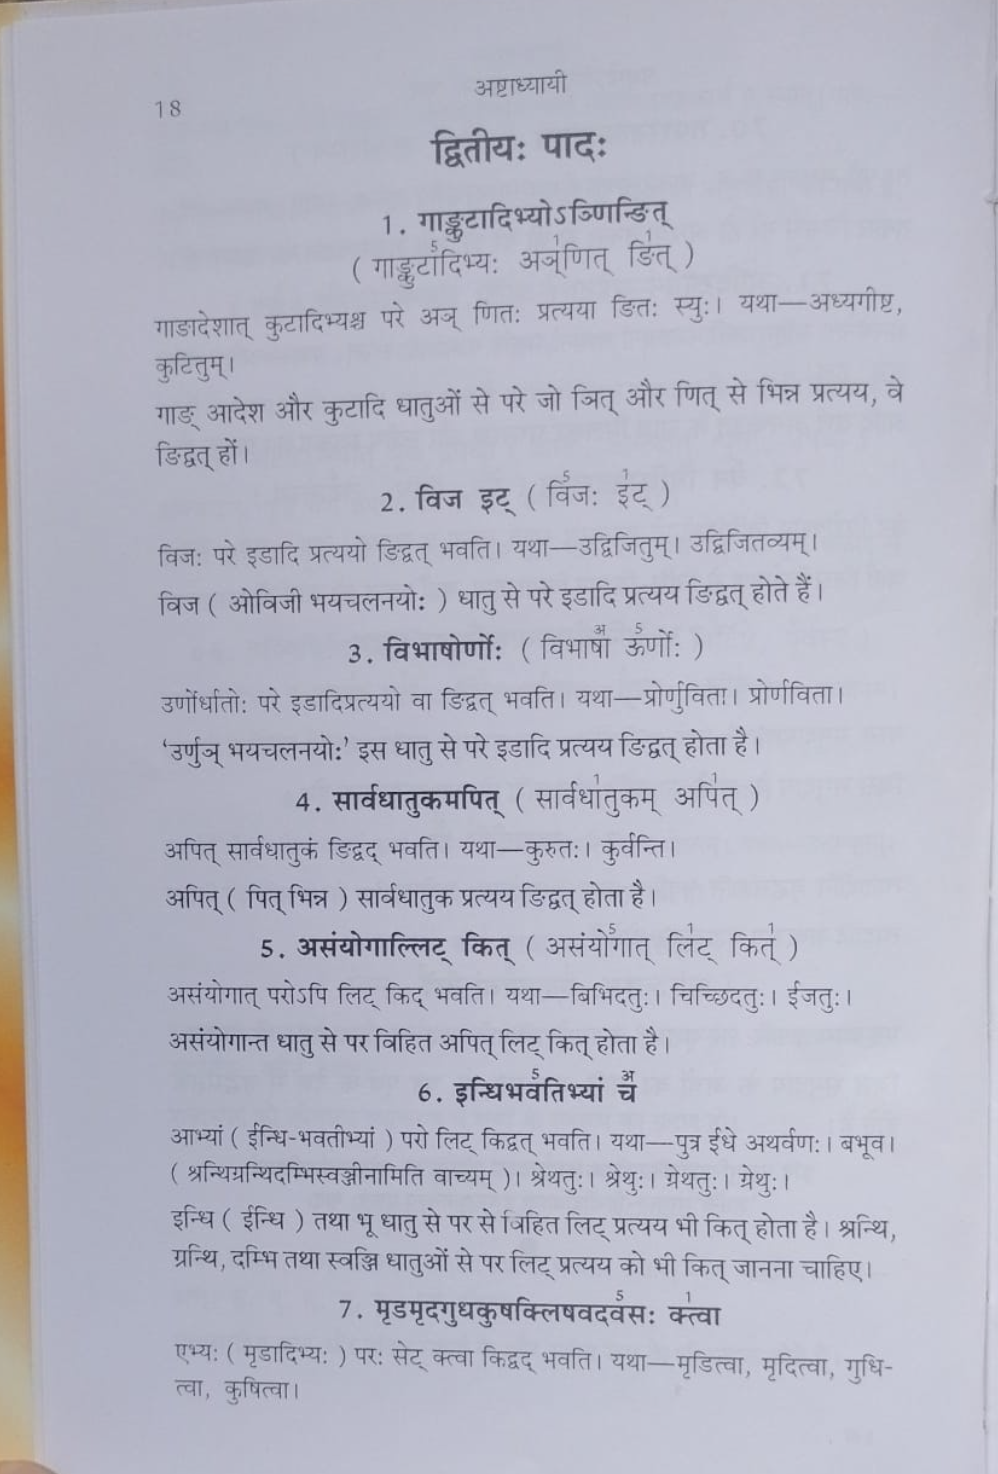 अष्टाध्यायी
18
द्वितीयः पादः
1. गाङ्कुटादिभ्योऽञ्णिन्ङित्
( गाङ्कुटादिभ्यः अञ्णित् ङित् )
गाङादेशात् कुटादिभ्यश्च परे अञ् णितः प्रत्यया ङितः स्युः। यथा—अध्यगीष्ट,
कुटितुम्।
गाङ् आदेश और कुटादि धातुओं से परे जो ञित् और णित् से भिन्न प्रत्यय, वे
ङिद्वत् हों।
2. विज इट् ( विजः इट् )
विजः परे इडादि प्रत्ययो ङिद्वत् भवति। यथा—उद्विजितुम्। उद्विजितव्यम्।
विज ( ओविजी भयचलनयोः ) धातु से परे इडादि प्रत्यय ङिद्वत् होते हैं।
3. विभाषोर्णोः ( विभाषा ऊर्णोः )
उर्णोर्धातोः परे इडादिप्रत्ययो वा ङिद्वत् भवति। यथा—प्रोर्णुविता। प्रोर्णविता।
‘उर्णुञ् भयचलनयोः’ इस धातु से परे इडादि प्रत्यय ङिद्वत् होता है।
4. सार्वधातुकमपित् ( सार्वधातुकम् अपित् )
अपित् सार्वधातुकं ङिद्वद् भवति। यथा—कुरुतः। कुर्वन्ति।
अपित् ( पित् भिन्न ) सार्वधातुक प्रत्यय ङिद्वत् होता है।
5. असंयोगाल्लिट् कित् ( असंयोगात् लिट् कित् )
असंयोगात् परोऽपि लिट् किद् भवति। यथा—बिभिदतुः। चिच्छिदतुः। ईजतुः।
असंयोगान्त धातु से पर विहित अपित् लिट् कित् होता है।
6. इन्धिभवतिभ्यां च
आभ्यां ( ईन्धि-भवतीभ्यां ) परो लिट् किद्वत् भवति। यथा—पुत्र ईधे अथर्वणः। बभूव।
( श्रन्थिग्रन्थिदम्भिस्वञ्जीनामिति वाच्यम् )। श्रेथतुः। श्रेथुः। ग्रेथतुः। ग्रेथुः।
इन्धि ( ईन्धि ) तथा भू धातु से पर से विहित लिट् प्रत्यय भी कित् होता है। श्रन्थि,
ग्रन्थि, दम्भि तथा स्वञ्जि धातुओं से पर लिट् प्रत्यय को भी कित् जानना चाहिए।
7. मृडमृदगुधकुषक्लिषवदवसः क्त्वा
एभ्यः ( मृडादिभ्यः ) परः सेट् क्त्वा किद्वद् भवति। यथा—मृडित्वा, मृदित्वा, गुधि-
त्वा, कुषित्वा।